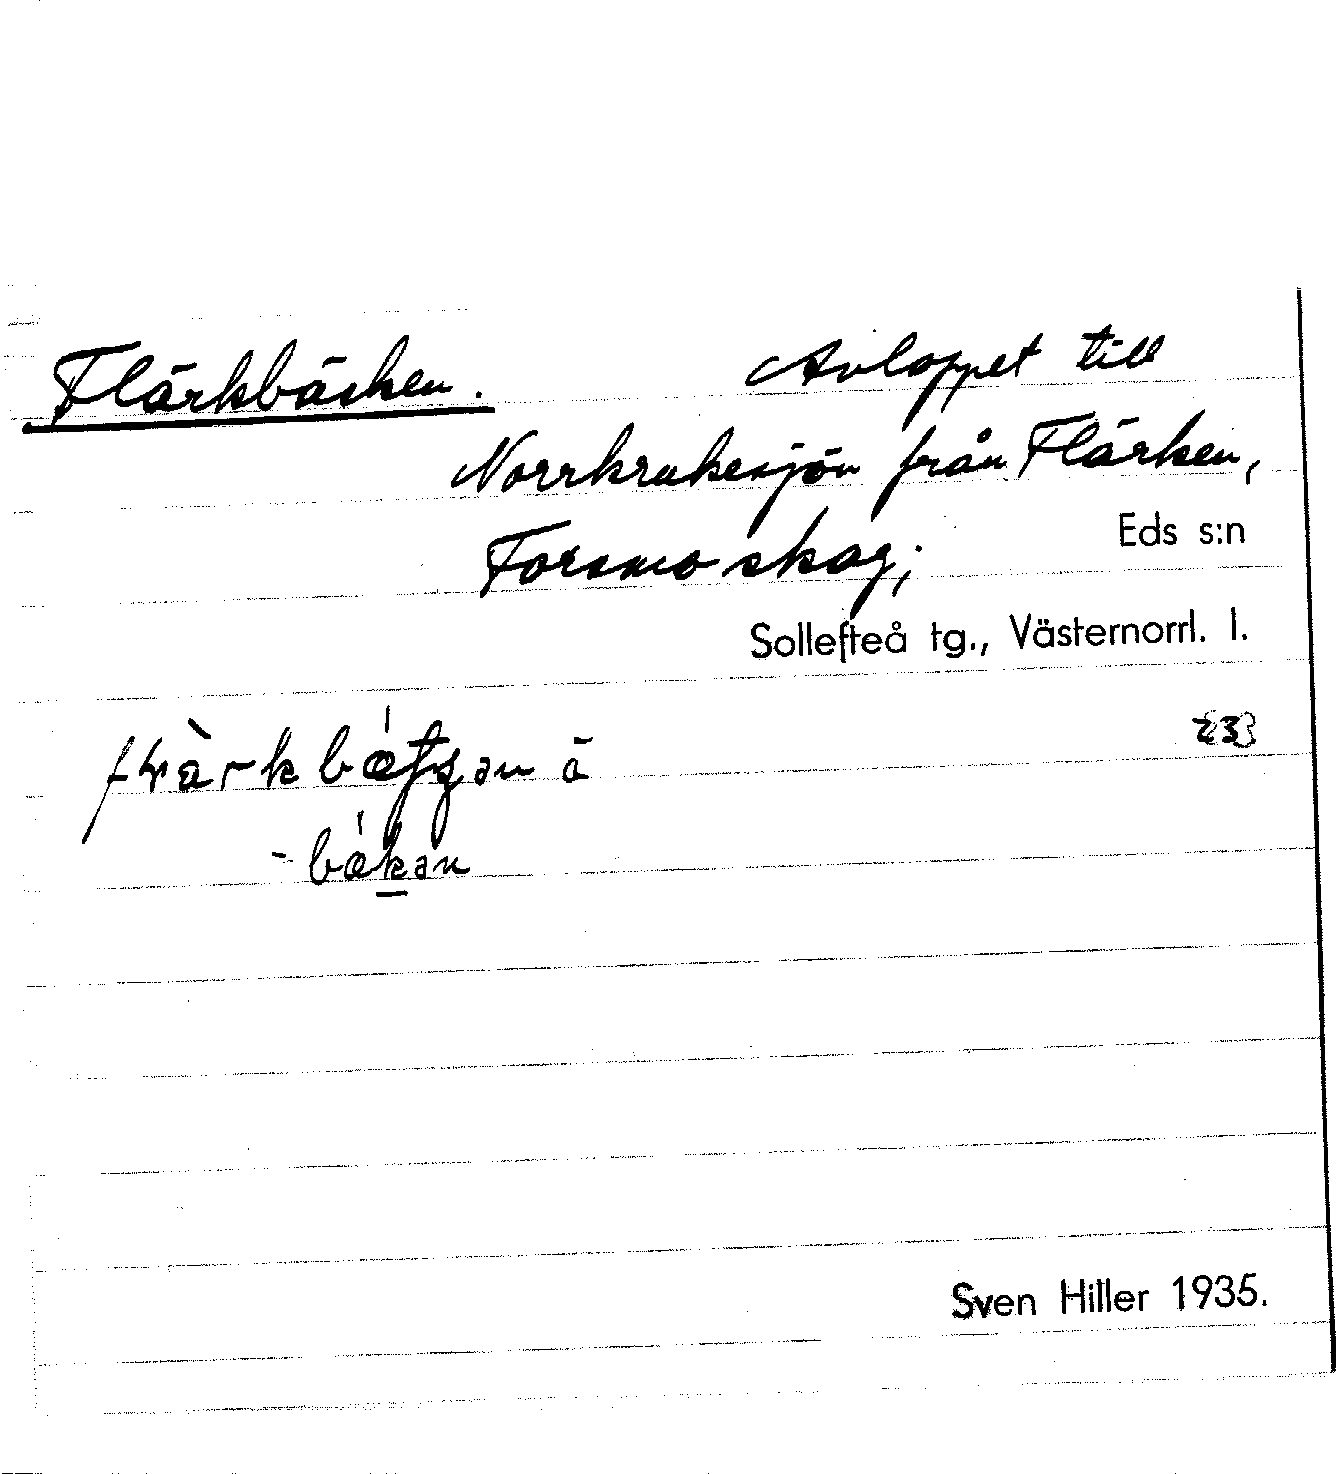 Flärkbäcken. Avloppet till
Norrkrukesjön från Flärken,
Forsmo skog;
Eds s:n
Sollefteå tg., Västernorrl. l.
233
Sven Hiller 1935.